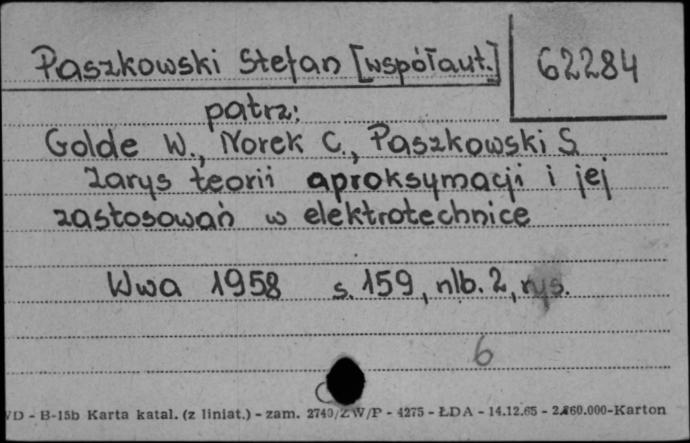 Paszkowski Stefan [współaut.] 62284
patrz:
Golde W., Norek C., Paszkowski S.
Zarys teorii aproksymacji i jej
zastosowań w elektrotechnice
Wwa 1958 s. 159, nlb. 2, rys.
6
VD - B-15b Karta katal. (z liniat.) - zam. 2740/ZW/P - 4275 - ŁDA - 14.12.65 - 2.260.000-Karton